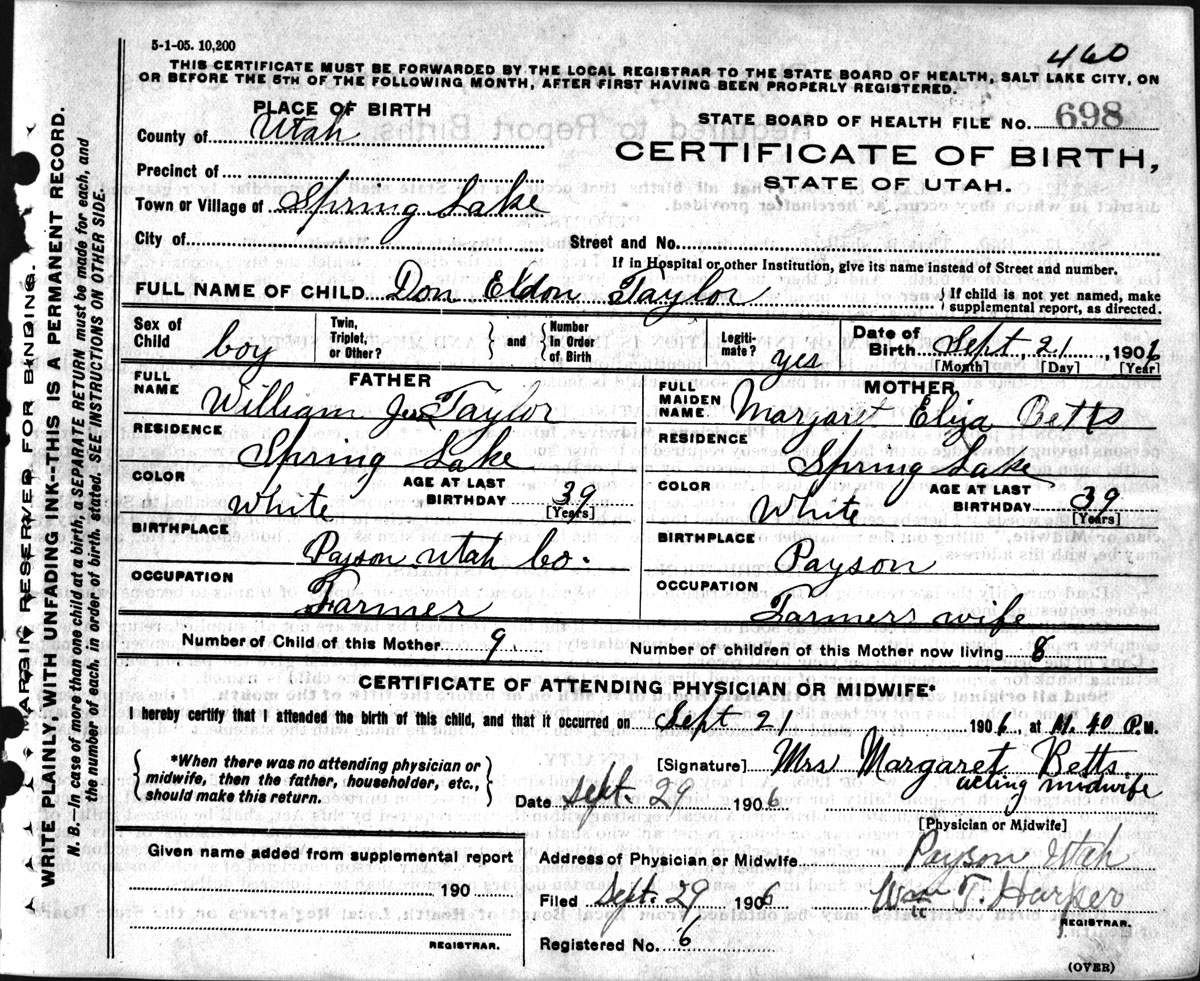 5-1-05. 10,200
460
THIS CERTIFICATE MUST BE FORWARDED BY THE LOCAL REGISTRAR TO THE STATE BOARD OF HEALTH, SALT LAKE CITY, ON
OR BEFORE THE 5TH OF THE FOLLOWING MONTH, AFTER FIRST HAVING BEEN PROPERLY REGISTERED.
PLACE OF BIRTH
County of Utah
STATE BOARD OF HEALTH FILE No. 698
CERTIFICATE OF BIRTH,
STATE OF UTAH.
Precinct of
Town or Village of Spring Lake
City of
Street and No.
If in Hospital or other Institution, give its name instead of Street and number.
FULL NAME OF CHILD Don Eldon Taylor
If child is not yet named, make
supplemental report, as directed.
Sex of
Child boy
Twin,
Triplet,
or Other?
and
Number
In Order
of Birth
Legiti-
mate? yes
Date of
Birth Sept 21, 1906
[Month] [Day] [Year]
FATHER
FULL
NAME William Taylor
RESIDENCE
Spring Lake
COLOR
White
AGE AT LAST
BIRTHDAY 39
[Years]
BIRTHPLACE
Payson Utah Co.
OCCUPATION
Farmer
MOTHER
FULL
MAIDEN
NAME Margaret Eliza Betts
RESIDENCE
Spring Lake
COLOR
White
AGE AT LAST
BIRTHDAY 39
[Years]
BIRTHPLACE
Payson
OCCUPATION
Farmers wife
Number of Child of this Mother 9.
Number of children of this Mother now living 8
CERTIFICATE OF ATTENDING PHYSICIAN OR MIDWIFE*
I hereby certify that I attended the birth of this child, and that it occurred on Sept 21 1906, at 11.40 P.M.
*When there was no attending physician or
midwife, then the father, householder, etc.,
should make this return.
[Signature] Mrs Margaret Betts.
acting midwife
Date Sept. 29 1906
[Physician or Midwife]
Given name added from supplemental report
190
REGISTRAR.
Address of Physician or Midwife Payson Utah
Filed Sept. 29 1906 Wm T. Harper
REGISTRAR.
Registered No. 6
(OVER)
MARGIN RESERVED FOR BINDING.
WRITE PLAINLY, WITH UNFADING INK--THIS IS A PERMANENT RECORD.
N. B.—In case of more than one child at a birth, a SEPARATE RETURN must be made for each, and
the number of each, in order of birth, stated. SEE INSTRUCTIONS ON OTHER SIDE.